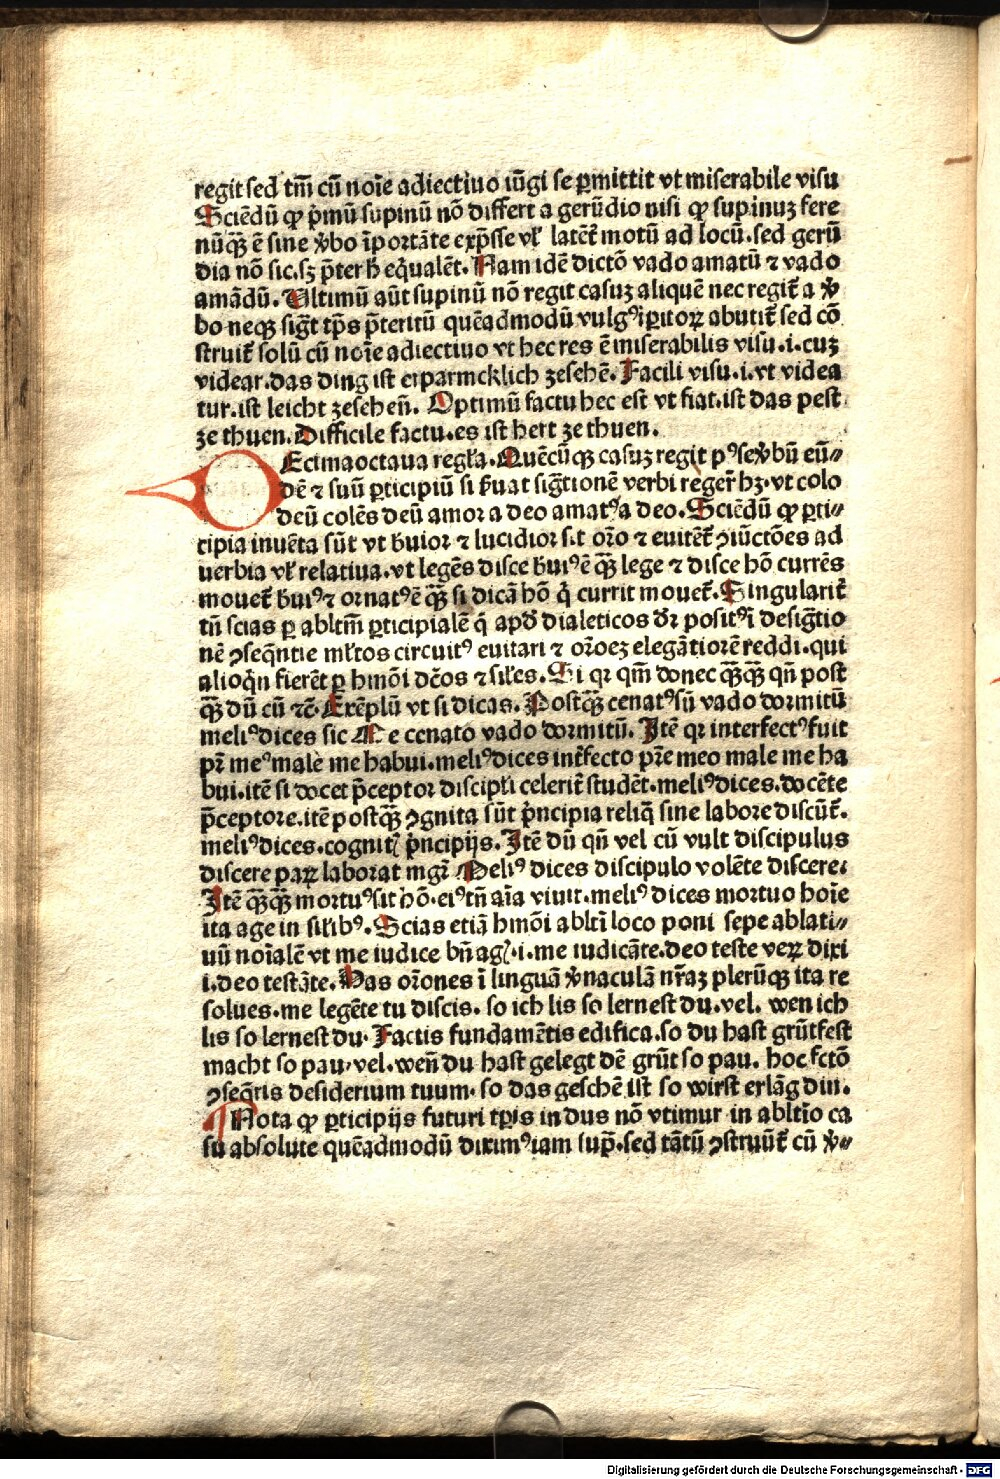 regit sed tm̄ cū noīe adiectiuo iūgi se ꝑmittit vt miserabile visu
Sciēdū ꝙ pͥmū supinū nō differt a gerūdio nisi ꝙ supinuꝫ fere
nūqꝫ̄ ē sine v̊bo īportāte exp̄sse vl̓ latēt̓ motū ad locū. sed gerū
dia nō sic. sꝫ p̄ter h̓ eq̄ualēt. Nam idē dictō vado amatū ⁊ vado
amādū. Ultimū aūt supinū nō regit casuꝫ aliquē nec regit̓ a v̊
bo neqꝫ sigt̄ tp̄s p̄teritū quēadmodū vulgꝰ īꝑitoꝝ abutit̓ sed cō
struit̓ solū cū noīe adiectiuo vt hec res ē miserabilis visu .i. cuꝫ
videar. das ding ist erparmcklich zesehē. Facili visu .i. vt videa
tur. ist leicht zesehen̄. Optimū factu hec est vt fiat. ist das pest
ze thuen. Difficile factu. es ist hert ze thuen.
DEcimaoctaua regl̓a. Quēcūqꝫ casuꝫ regit pꝰse v̊bū eū⸗
dē ⁊ suū ꝑticipiū si ẜuat sigt̄ionē verbi reger̓ hꝫ. vt colo
deū colēs deū amor a deo amatꝰ a deo. Sciēdū ꝙ ꝑti⸗
cipia inuēta sūt vt b̓uior ⁊ lucidior sit or̄o ⁊ euitēt̓ ꝯiūctōes ad
uerbia vl̓ relatiua. vt legēs disce b̓uiꝰ ē qꝫ̄ lege ⁊ disce hō currēs
mouet̓ b̓uiꝰ ⁊ ornatꝰ ē qꝫ̄ si dicā hō q̇ currit mouet̓. Singularit̓
tn̄ scias ꝑ abltm̄ ꝑticipialē q̇ apd̓ dialeticos dr̓ positꝰ ī desigt̄io
nē ꝯseq̄ntie ml̓tos circuitꝰ euitari ⁊ or̄oeꝫ elegātiorē reddi. qui
alioq̇n fierēt ꝑ hmōi dc̄os ⁊ sil̓es. Si qr qm̄ donec qꝫ̄qꝫ̄ qn̄ post
qꝫ̄ dū cū ⁊c̄. Exēplū vt si dicas. Postqꝫ̄ cenatꝰ sū vado dormitū
meliꝰ dices sic Me cenato vado dormitū. Itē qr interfectꝰ fuit
pr̄ meꝰ male me habui. meliꝰ dices int̓fecto pr̄e meo male me ha
bui. itē si docet p̄ceptor discipl̓i celerit̓ studēt. meliꝰ dices. docēte
p̄ceptore. itē postqꝫ̄ ꝯgnita sūt pͥncipia reliq̄ sine labore discūt̓.
meliꝰ dices. cognitꝭ pͥncipijs. Itē dū qn̄ vel cū vult discipulus
discere paꝝ laborat mgr̄ Meliꝰ dices discipulo volēte discere.
Itē qꝫ̄qꝫ̄ mortuꝰ sit hō. eiꝰ tn̄ aīa viuit. meliꝰ dices mortuo hoīe
ita age in sil̓ibꝰ. Scias etiā hmōi abltī loco poni sepe ablati⸗
uū noīalē vt me iudice bn̄ agꝭ .i. me iudicāte. deo teste veꝝ dixi
i. deo testāte. Has or̄ones ī linguā v̊naculā nr̄aꝫ plerūqꝫ ita re
solues. me legēte tu discis. so ich lis so lernest du. vel. wen ich
lis so lernest du. Factis fundamētis edifica. so du hast grūtfest
macht so pau. vel. wen̄ du hast gelegt dē grūt so pau. hoc fctō
ꝯseq̄ris desiderium tuum. so das geschē ist so wirst erlāg din.
Nota ꝙ ꝑticipijs futuri tꝑis in dus nō vtimur in abltīo ca
su absolute quēadmodū diximꝰ iam sup̄. sed tātū ꝯstruūt̓ cū v̊⸗
Digitalisierung gefördert durch die Deutsche Forschungsgemeinschaft - DFG